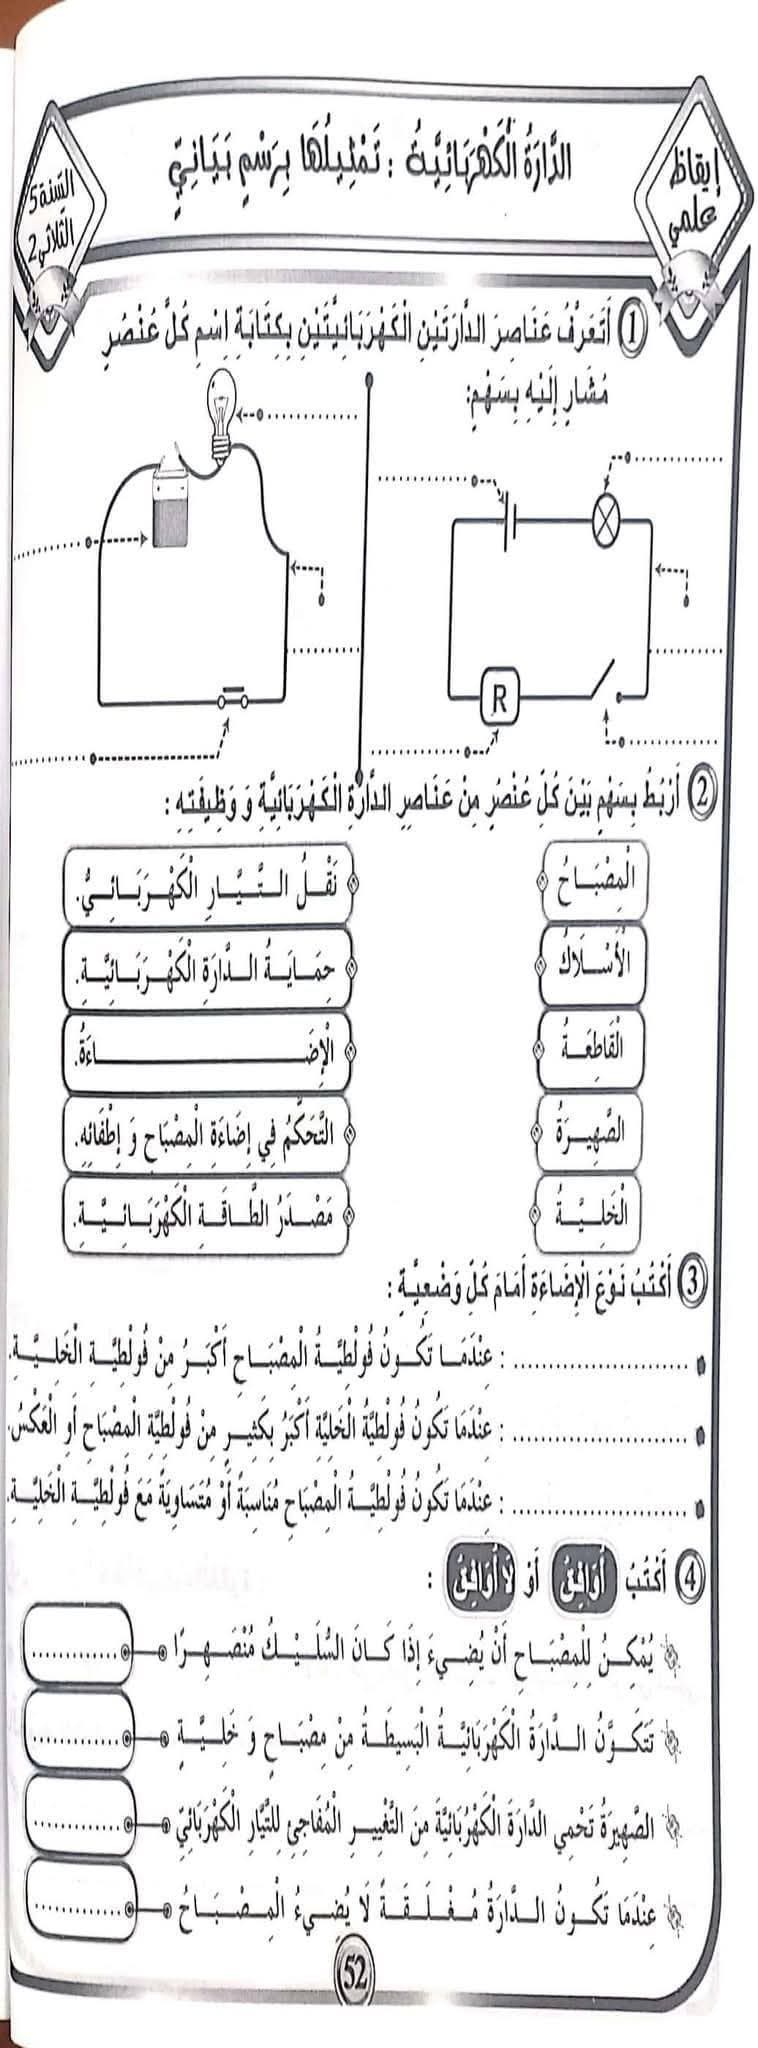 إيقاظ علمي
الدَّارَةُ الْكَهْرَبَائِيَّةُ : تَمْثِيلُهَا بِرَسْمٍ بَيَانِيٍّ
السّنة 5
الثّلاثي 2
1 أَتَعَرَّفُ عَنَاصِرَ الدَّارَتَيْنِ الْكَهْرَبَائِيَّتَيْنِ بِكِتَابَةِ إِسْمِ كُلِّ عُنْصُرٍ
مُشَارٍ إِلَيْهِ بِسَهْمٍ:
R
2 أَرْبُطُ بِسَهْمٍ بَيْنَ كُلِّ عُنْصُرٍ مِنْ عَنَاصِرِ الدَّارَةِ الْكَهْرَبَائِيَّةِ وَ وَظِيفَتِهِ :
الْمِصْبَاحُ
نَقْلُ التَّيَّارِ الْكَهْرَبَائِيُّ.
الْأَسْلَاكُ
حِمَايَةُ الدَّارَةِ الْكَهْرَبَائِيَّةِ.
الْقَاطِعَةُ
الْإِضَاءَةُ.
الصَّهِيرَةُ
التَّحَكُّمُ فِي إِضَاءَةِ الْمِصْبَاحِ وَ إِطْفَائِهِ.
الْخَلِيَّةُ
مَصْدَرُ الطَّاقَةِ الْكَهْرَبَائِيَّةِ.
3 أَكْتُبُ نَوْعَ الْإِضَاءَةِ أَمَامَ كُلِّ وَضْعِيَّةٍ :
........................ : عِنْدَمَا تَكُونُ فُولْطِيَّةُ الْمِصْبَاحِ أَكْبَرُ مِنْ فُولْطِيَّةِ الْخَلِيَّةِ.
........................ : عِنْدَمَا تَكُونُ فُولْطِيَّةُ الْخَلِيَّةِ أَكْبَرُ بِكَثِيرٍ مِنْ فُولْطِيَّةِ الْمِصْبَاحِ أَوِ الْعَكْسُ.
........................ : عِنْدَمَا تَكُونُ فُولْطِيَّةُ الْمِصْبَاحِ مُنَاسِبَةً أَوْ مُتَسَاوِيَةً مَعَ فُولْطِيَّةِ الْخَلِيَّةِ.
4 أَكْتُبُ أُوَافِقُ أَوْ لَا أُوَافِقُ :
يُمْكِنُ لِلْمِصْبَاحِ أَنْ يُضِيءَ إِذَا كَانَ السُّلَيْكُ مُنْصَهِرًا .............
تَتَكَوَّنُ الدَّارَةُ الْكَهْرَبَائِيَّةُ الْبَسِيطَةُ مِنْ مِصْبَاحٍ وَ خَلِيَّةٍ .............
الصَّهِيرَةُ تَحْمِي الدَّارَةَ الْكَهْرُبَائِيَّةَ مِنَ التَّغْيِيرِ الْمُفَاجِئِ لِلتَّيَّارِ الْكَهْرَبَائِيِّ .............
عِنْدَمَا تَكُونُ الدَّارَةُ مُغْلَقَةً لَا يُضِيءُ الْمِصْبَاحُ .............
52